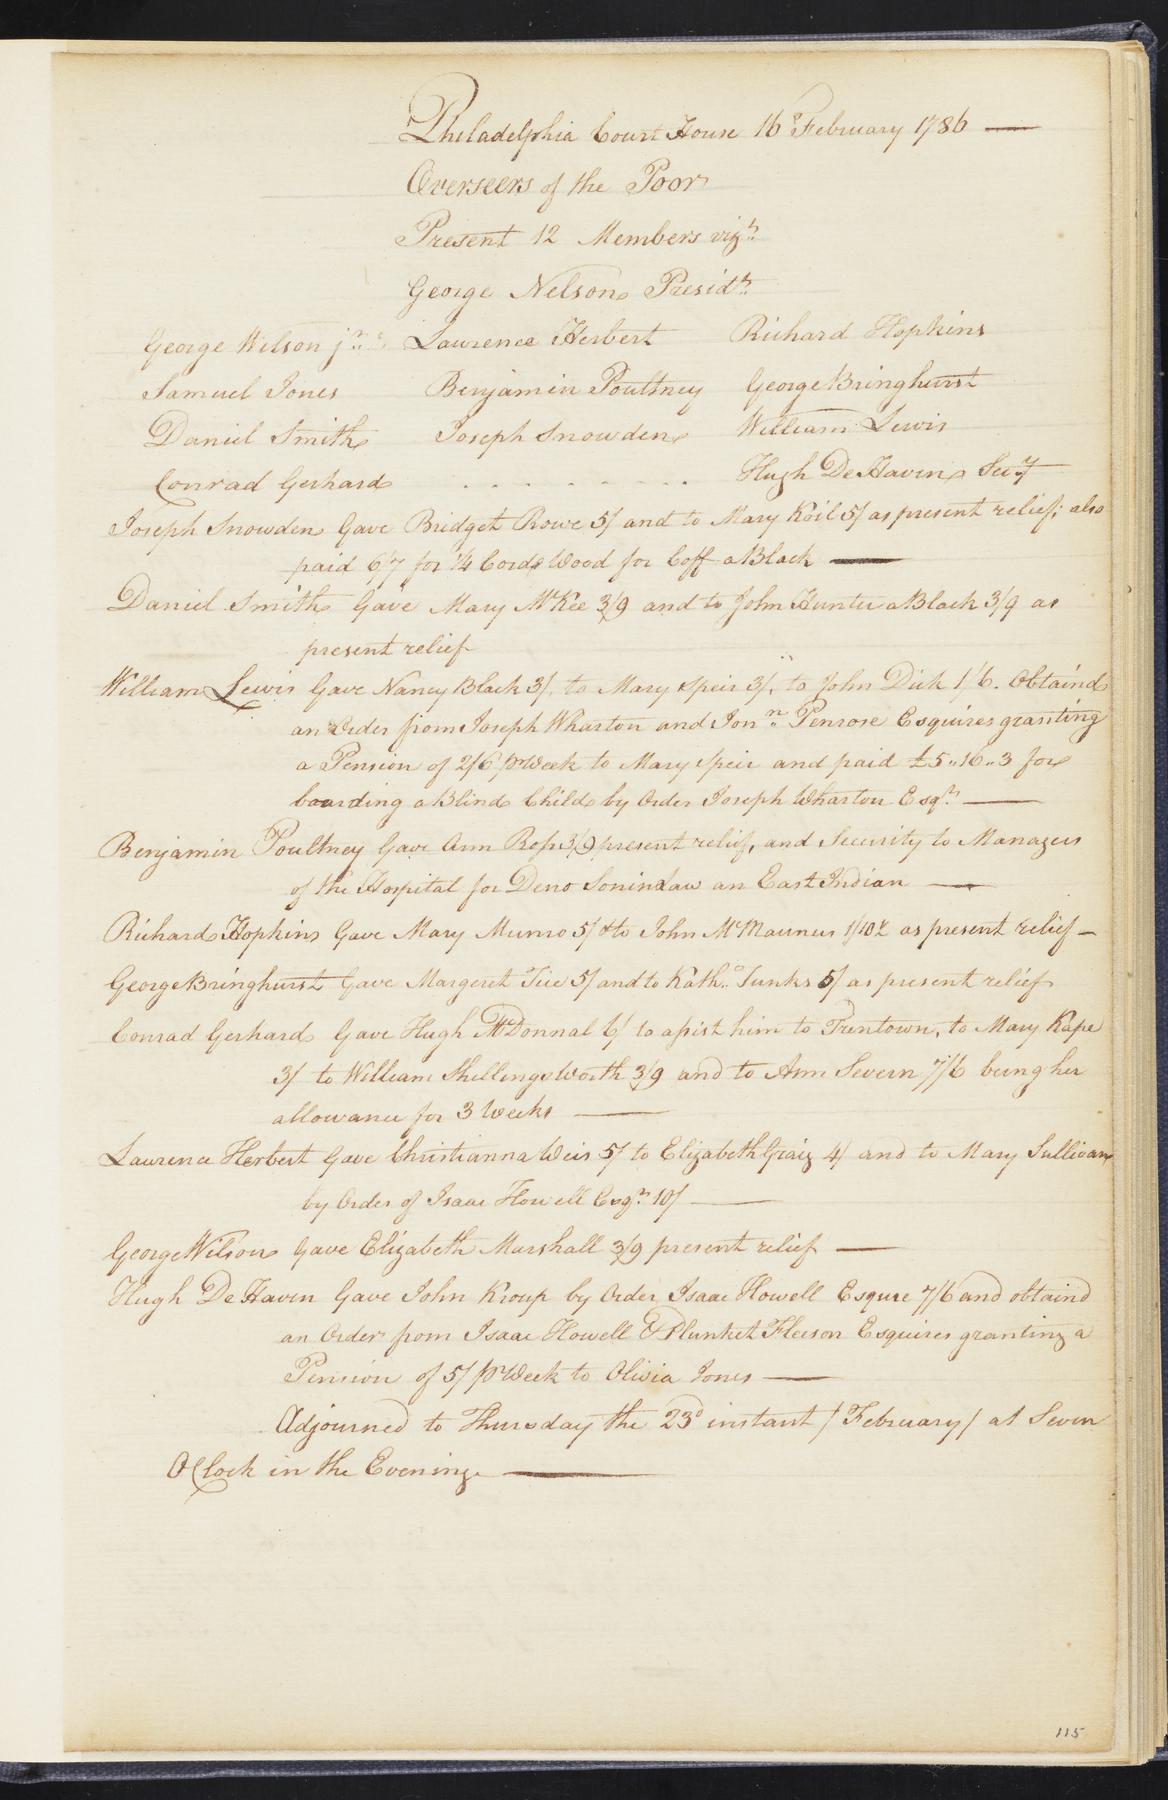 Philadelphia Court House 16th February 1786 —
Overseers of the Poor
Present 12 Members vizt.
George Nelson Presidt.
George Wilson jr. Lawrence Herbert Richard Hopkins
Samuel Jones Benjamin Poultney George Bringhurst
Daniel Smith Joseph Snowden William Lewis
Conrad Gerhard . . . . . . . . . . Hugh De Haven Secy
Joseph Snowden Gave Bridget Rowe 5/ and to Mary Koil 5/ as present relief; also
paid 6/7 for 1/4 Cord Wood for Coff a Black —
Daniel Smith Gave Mary McKee 3/9 and to John Hunter a Black 3/9 as
present relief
William Lewis Gave Nancy Black 3/, to Mary Speir 3/, to John Dick 1/6. Obtaind
an Order from Joseph Wharton and Jonn. Penrose Esquires granting
a Pension of 2/6 pr Week to Mary Speir and paid £5..16..3 for
boarding a Blind Child by Order Joseph Wharton Esqr. —
Benjamin Poultney Gave Ann Ross 3/9 present relief, and Security to Managers
of the Hospital for Deno Soninlaw an East Indian —
Richard Hopkins Gave Mary Munro 5/ & to John McManus 1/10½ as present relief —
George Bringhurst Gave Margeret Tice 5/ and to Kath. Tunks 5/ as present relief
Conrad Gerhard Gave Hugh McDonnal 6/ to assist him to Trentown, to Mary Kape
3/ to William Shellingsworth 3/9 and to Ann Severn 7/6 being her
allowance for 3 Weeks —
Lawrence Herbert Gave Christianna Weis 5/ to Elizabeth Graig 4/ and to Mary Sullivan
by Order of Isaac Howell Esqr. 10/ —
George Wilson Gave Elizabeth Marshall 3/9 present relief —
Hugh De Haven Gave John Kroup by Order Isaac Howell Esqure 7/6 and obtaind
an Order from Isaac Howell & Plunket Fleeson Esquires granting a
Pension of 5/ pr Week to Olivia Jones —
Adjourned to Thursday the 23d instant / February / at Seven
OClock in the Evening —
115